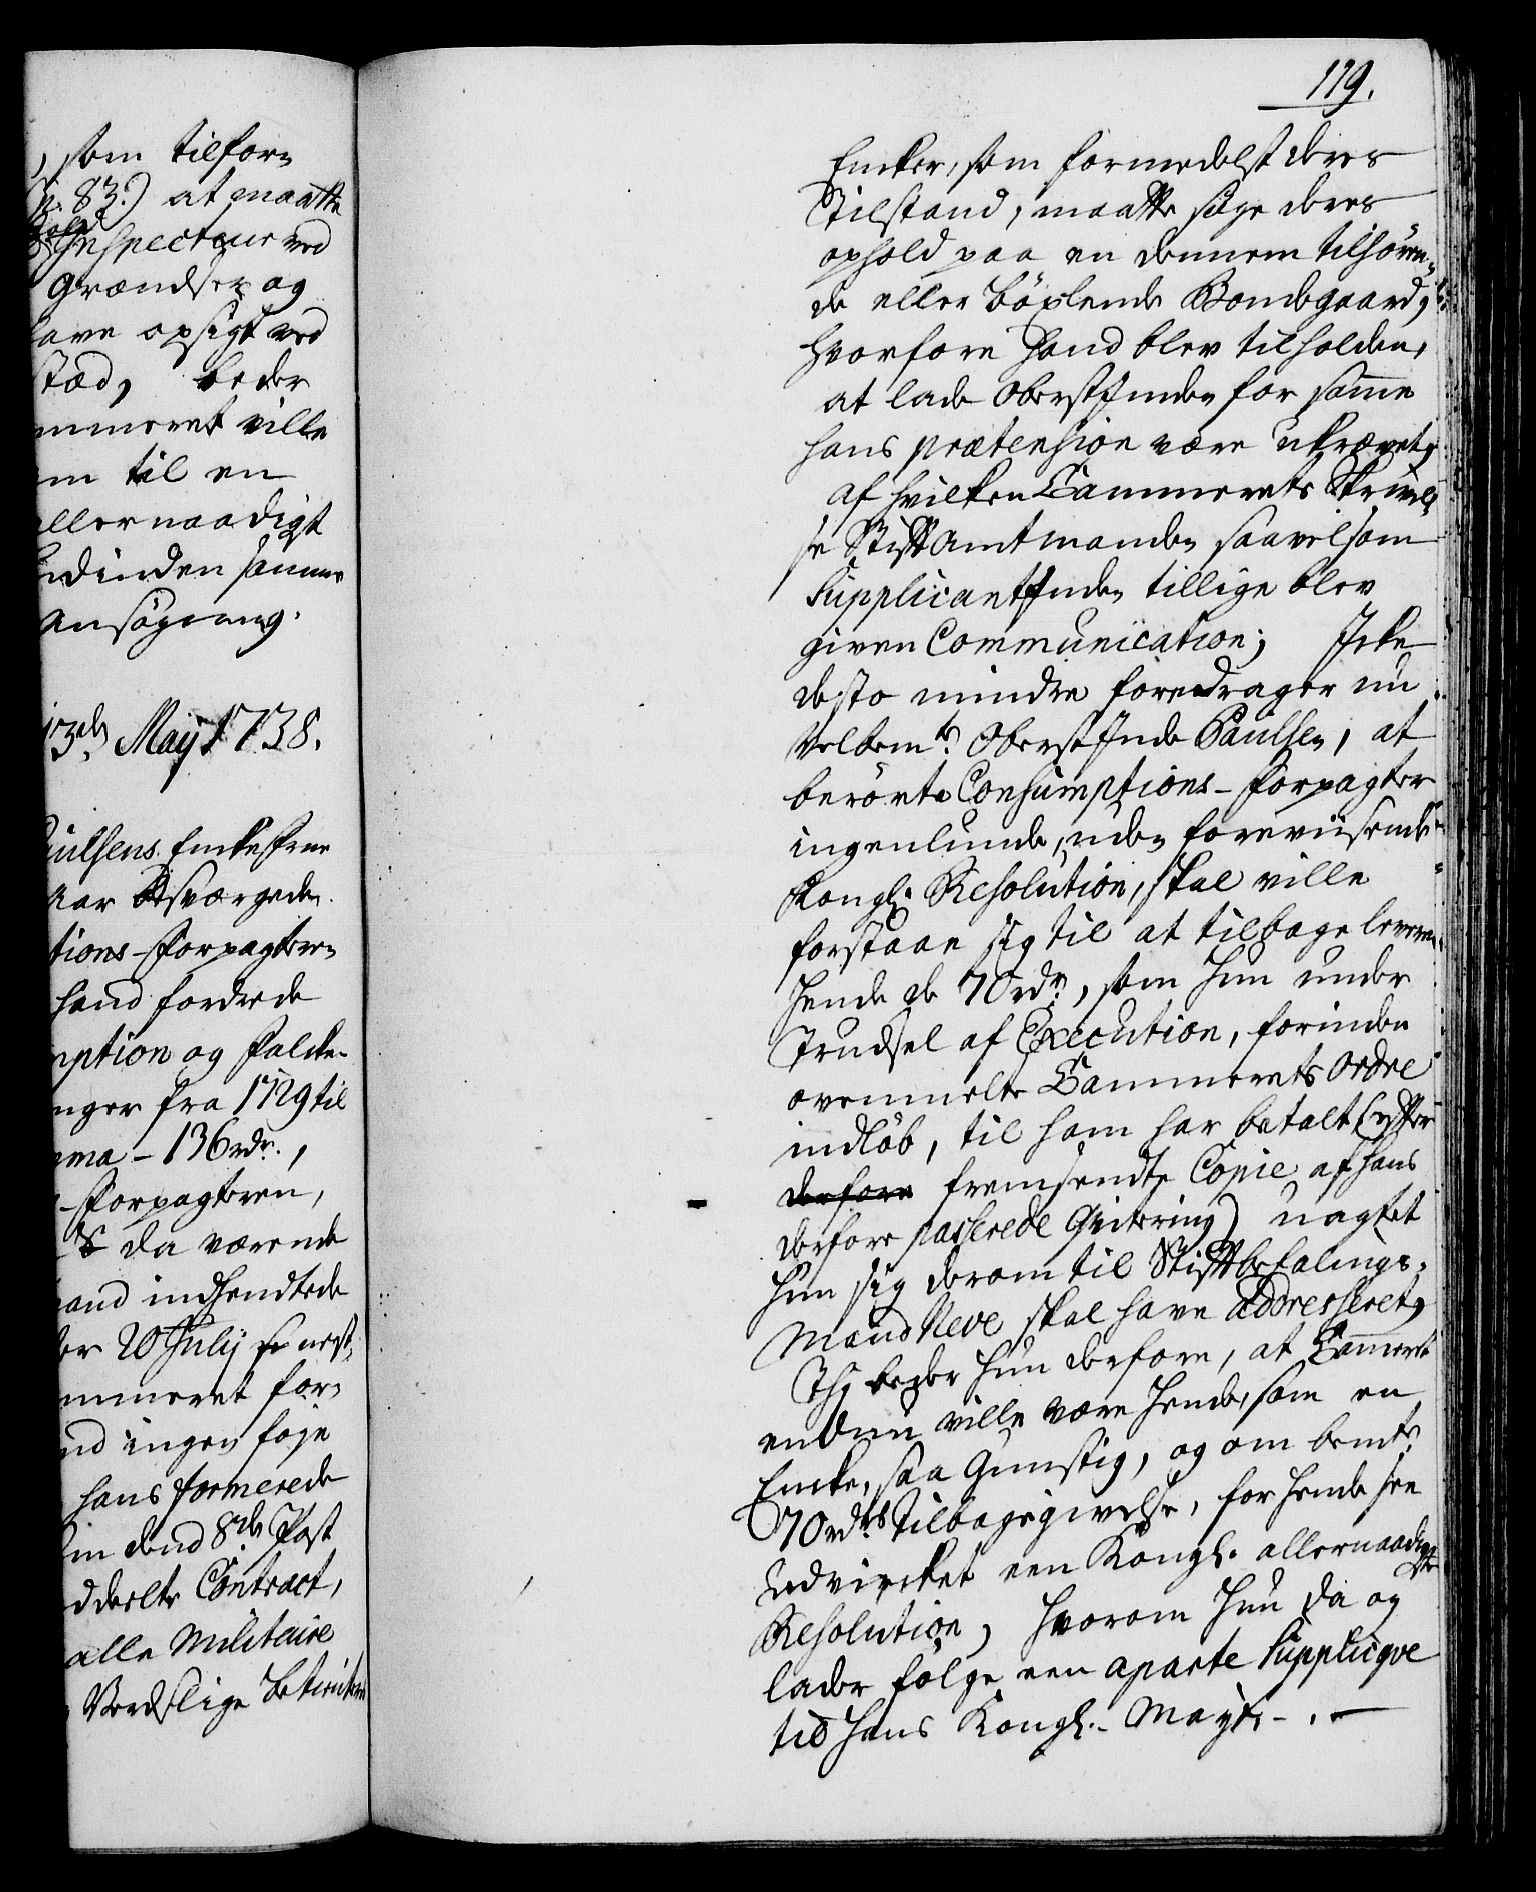 , som tilforn
p. 83.) at maatte
Told
Inspecteur ved
Grændsen og
have opsigt ved
stæd, beder
ammeret ville
em til en
allernaadigt
indinden samme
ansøgning.
13de May 1738.
Paulsens Enkefrue
har besværgede
tions-Forpagteren
hand fordrede
mption og Folcke-
nger fra 1729 til
mma - 136 rdr.,
-Forpagteren,
da værende
mand indhendtede
der 20 July
ammeret for-
nd ingen føje
hans formerede
in dend 8de Post
ddeelte Contract,
alle Militaire
Verdslige Betiente
119.
Encker, som formedelst deres
Tilstand, maatte søge deres
ophold paa en dennem tilhøren-
de eller böxlende Bondegaard,
hvorfore hand blev tilholden,
at lade Oberstinden for samme
hans prætension være ukrævet,
af hvilken Cammerets Skrivel-
se Stiftamtmanden saavelsom
Supplicantinden tillige blev
given Communication; Icke
desto mindre foredrager nu
Velbemte. Oberstinde Paulsen, at
berörte Consumptions-Forpagter
ingenlunde, uden foreviisende
Kongl: Resolution, skal ville
forstaae sig til at tilbage levere
hende de 70 rdr, som hun under
Trudsel af Execution, forinden
ovenmelte Cammerets Ordre
indløb, til ham har betalt (efter
derfore fremsendte Copie af hans
derfore passerede Qvitering) uagtet
hun sig derom til Stiftbefalings-
Mand Neve skal have addresseret,
Thj beder hun derfore, at Cammeret
endnu ville være hende, som en
Encke, saa Gunstig, og om bemte.
70 rdrs Tilbagegivelse, for hende see
udvircket een Kongl. allernaadigste
Resolution, hvorom hun da og
lader følge een aparte Supplicqve
til Hans Kongl. Mayt. -